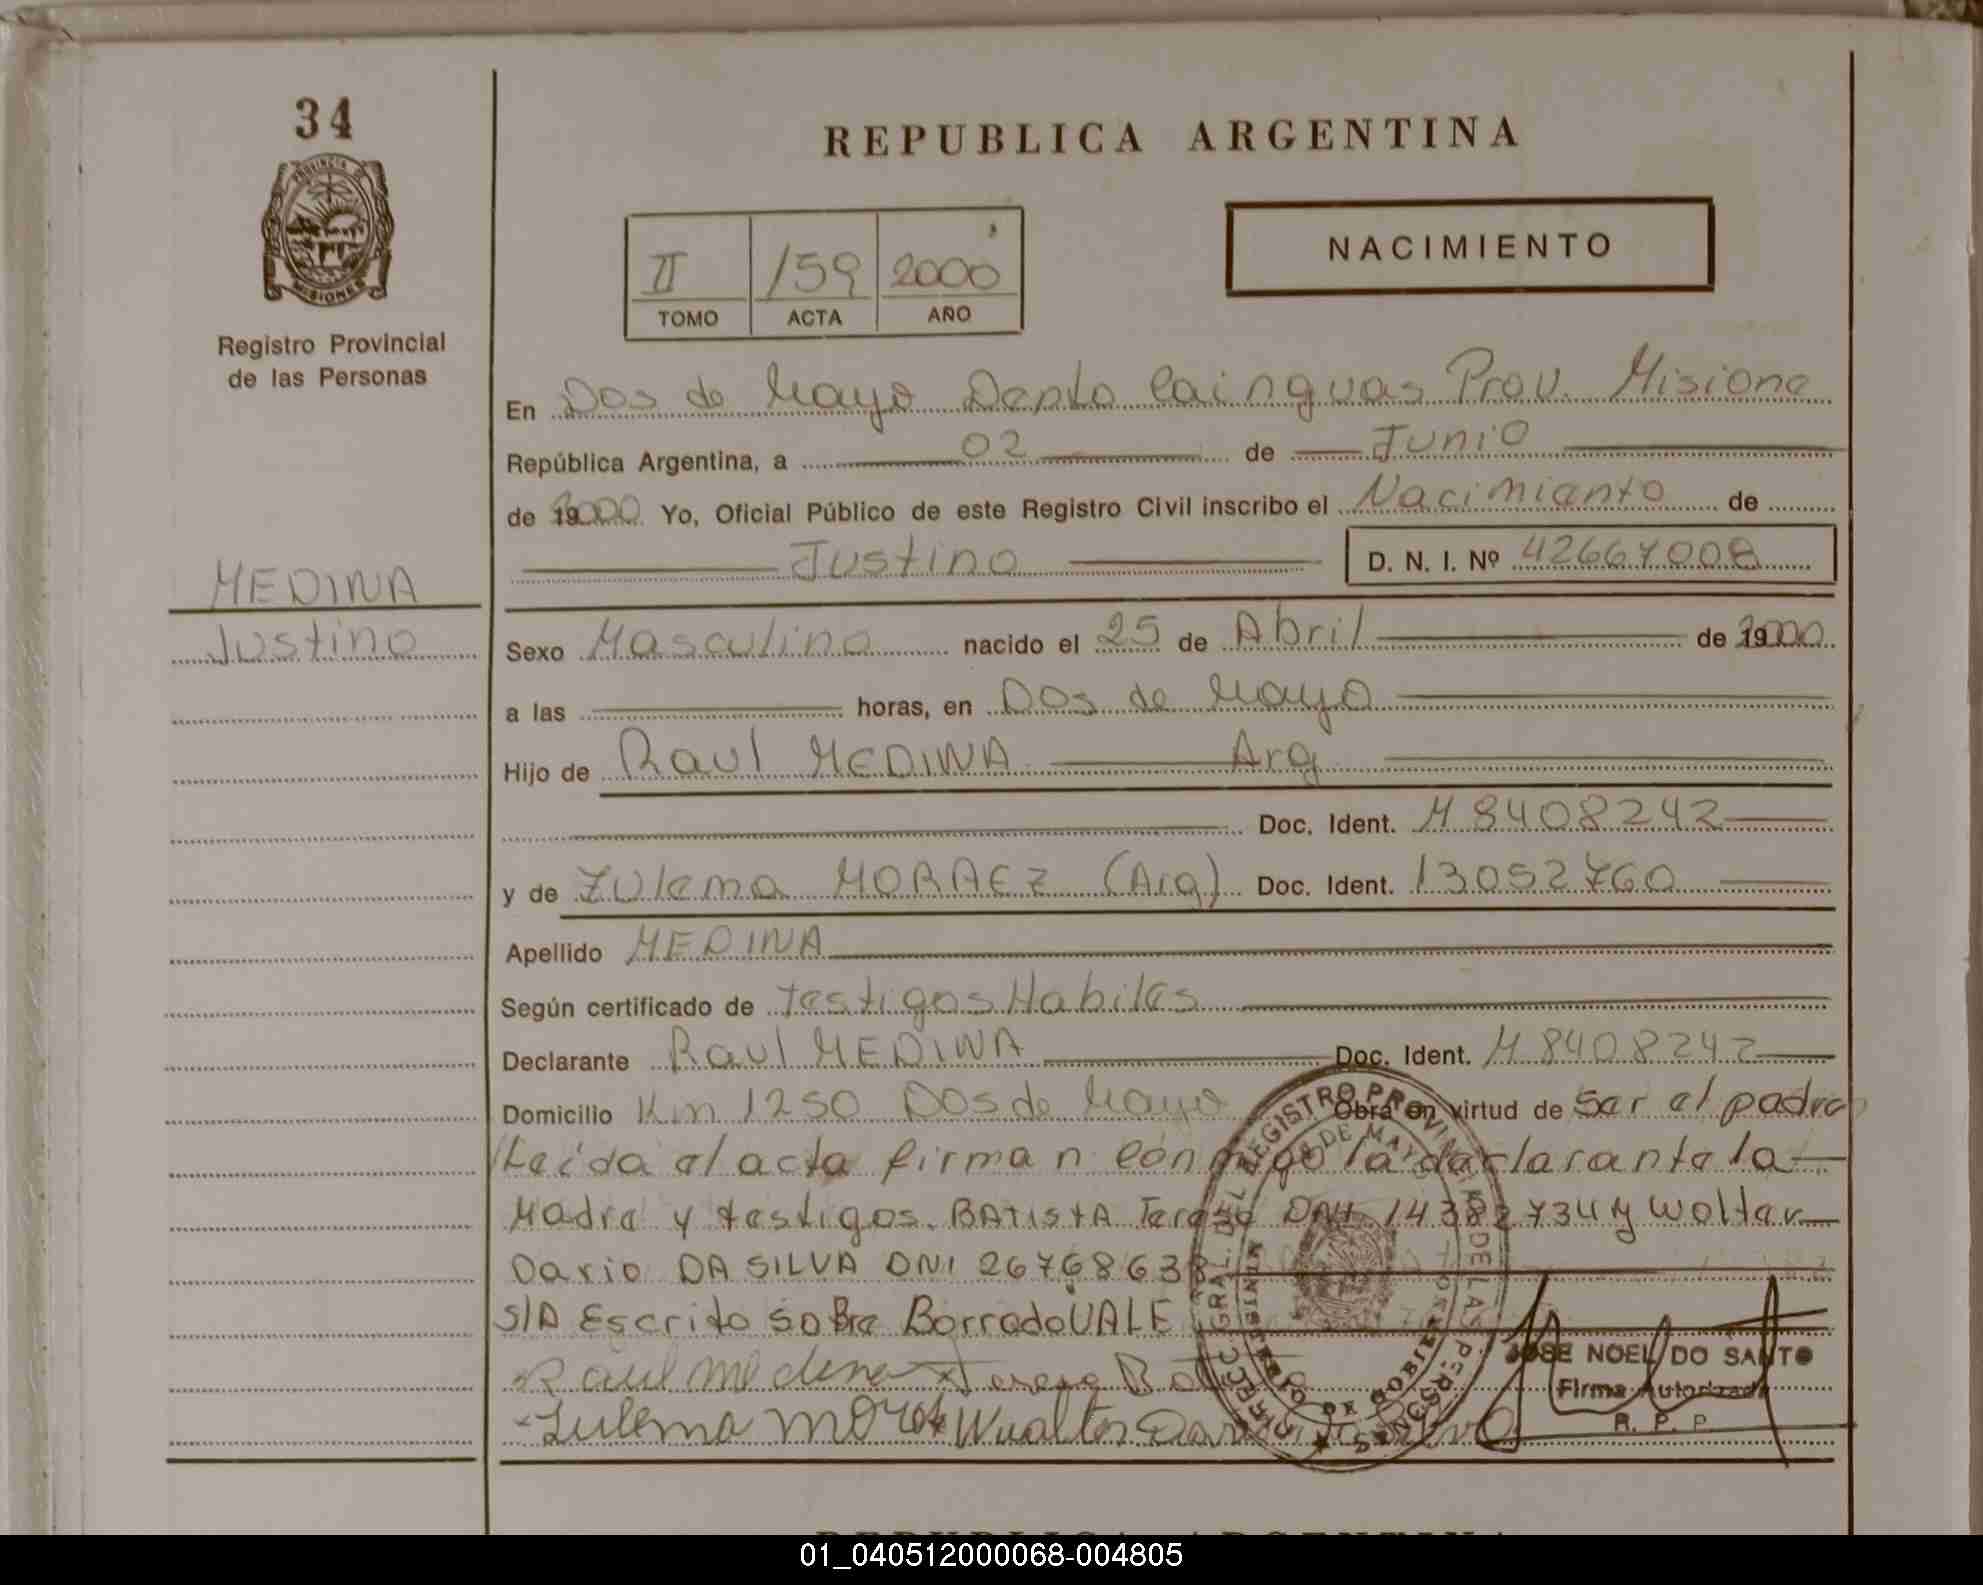 34
PROVINCIA DE
MISIONES
Registro Provincial
de las Personas
MEDINA
Justino
REPUBLICA ARGENTINA
II 159 2000
TOMO ACTA AÑO
NACIMIENTO
En Dos de Mayo Depto Cainguas Prov. Misione
República Argentina, a 02 de Junio
de 2000 Yo, Oficial Público de este Registro Civil inscribo el Nacimiento de
Justino D. N. I. Nº 42667008
Sexo Masculino nacido el 25 de Abril de 2000
a las horas, en Dos de Mayo
Hijo de Raul MEDINA Arg
Doc. Ident. M 8408242
y de Zulema MORAEZ (Arg) Doc. Ident. 13052760
Apellido MEDINA
Según certificado de testigos Habiles
Declarante Raul MEDINA Doc. Ident. M 8408242
Domicilio Km 1250 Dos de Mayo Obra en virtud de Ser el padre
Leida el acta firman conmigo la declarante la
Madre y testigos. BATISTA Teresa DNI 14382734 y Wolter
Dario DA SILVA DNI 26768638
S/A Escrito sobre Borrado VALE
Raul Medina Teresa
Zulema Wualter
DIRECC. GRAL. DEL REGISTRO PROVINCIAL DE LAS PERSONAS
DE MAYO
JOSE NOEL DO SANTO
Firma Autorizada
R. P. P.
REPUBLICA ARGENTINA
01_040512000068-004805